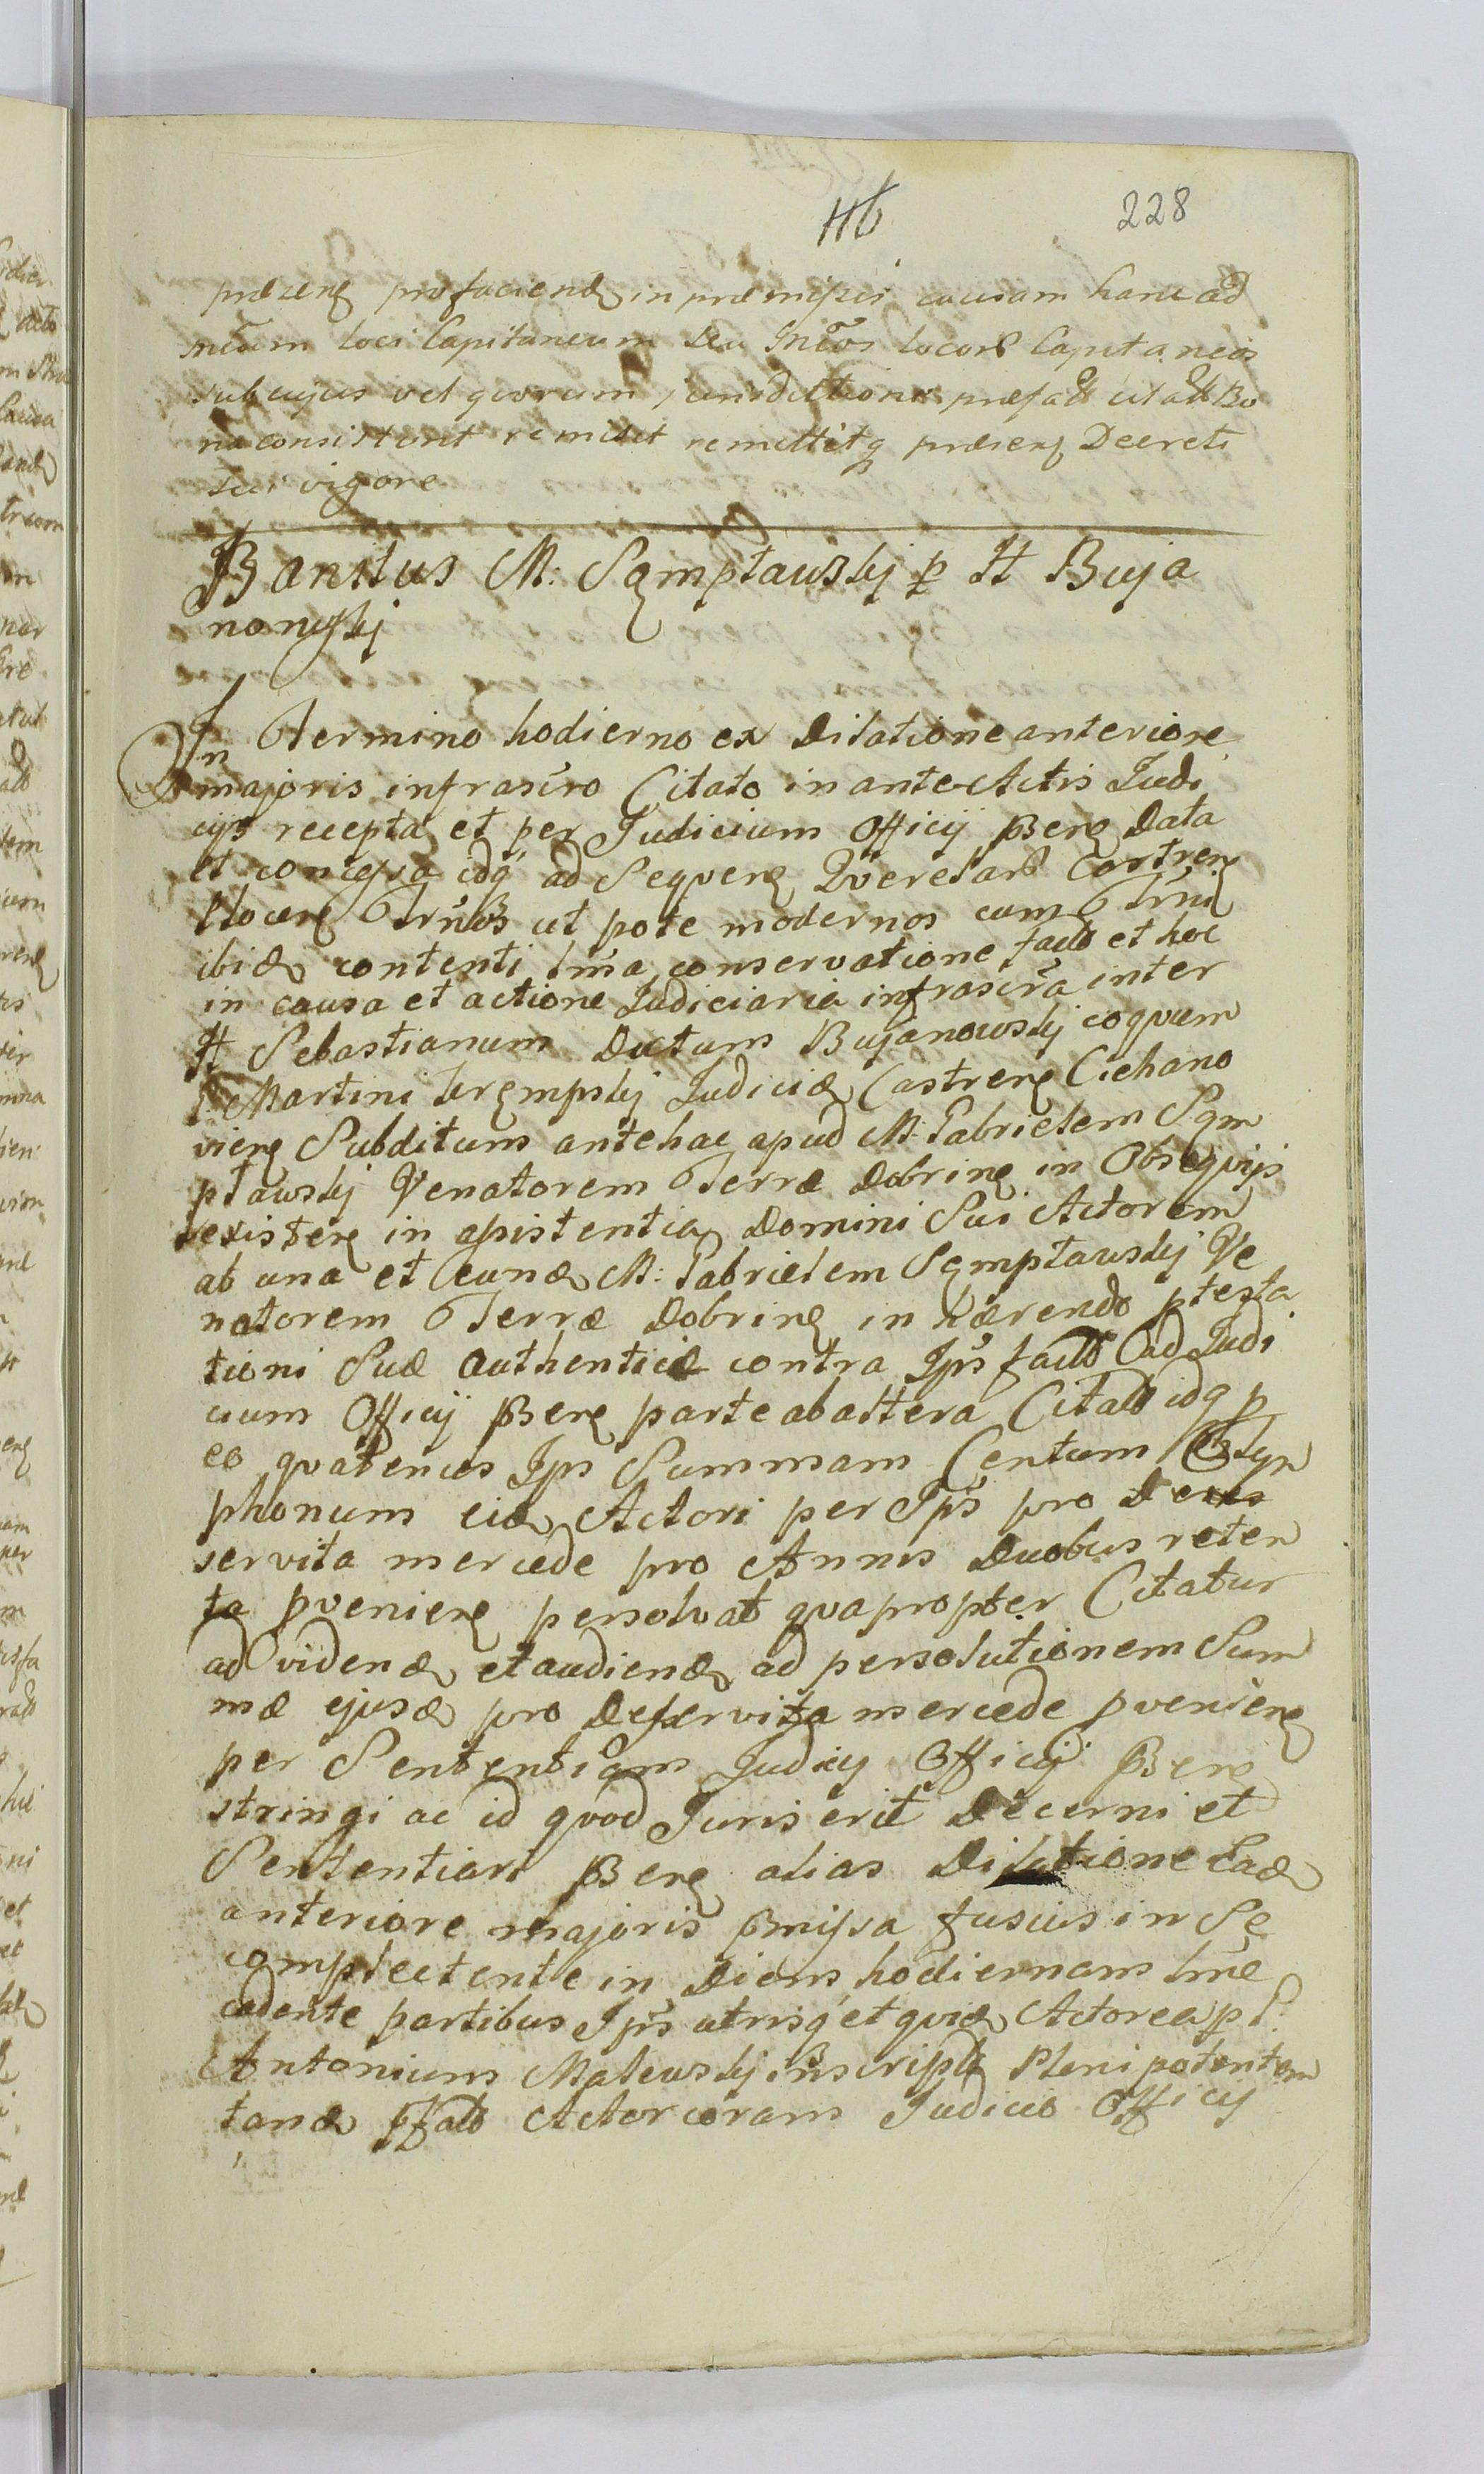 116 228
præsene pro faciend in præmissis causam hanc ad
Mcum loci Capitaneum seu Mcos locorum Capitaneos
sub cujus vel qvorum jurisdictione præfatt citatt Bo
na consistent remisit remittitq præsene Decreti
sui vigore
Banitus M: Sęmpławskj p H Buja
nowskj
In Termino hodierno ex Dilatione anteriore
majoris infrascro Citato in ante Actis Judi
cijs recepta et per Judicium Officij Bere Data
et concessa idq ad Seqvene Qverelar Castrene
hocce Trnos ut pote modernos cum Trni
ibid contenti lma conservatione facto et hoc
in causa et actione Judiciaria infrascra inter
H Sebastianum Dictum Bujanowskj coqvum
Martini Trempskj Judicia Castrene Ciehano
viene Subditum antehac apud M: Gabrielem Sęm
pławskj Venatorem Terræ Dobrine in Obseqvijs
existere in assistentia Domini Sui Actorem
ab una et eund M: Gabrielem Sęmpławskj Ve
natorem Terræ Dobrine in hærendo ptesta
tioni Suæ authenticæ contra Ips facto ad Judi
cium Officij Bere parte ab altera Citato idq p
eo qvatenus Ips Summam Centum Tyn
phonum eid Actori per Ips pro De
servita mercede pro Annis Duobus reten
ta pveniene persolvat qvapropter Citatur
ad vidend et audiend ad persolutionem Sum
mæ ejusd pro Deservita mercede pveniene
per Sententiam Judicij Officij Bere
stringi ac id qvod Juris erit Decerni et
Sententiari Bere alias Dilatione Ead
anteriore majoris pmissa fusius in Se
complectente in Diem hodiernam lme
cadente partibus Ips utrisq et qvid Actorea p
Antonium Malewskj inscript Plenipotentem
tand pfato Actor coram Judicio Officij